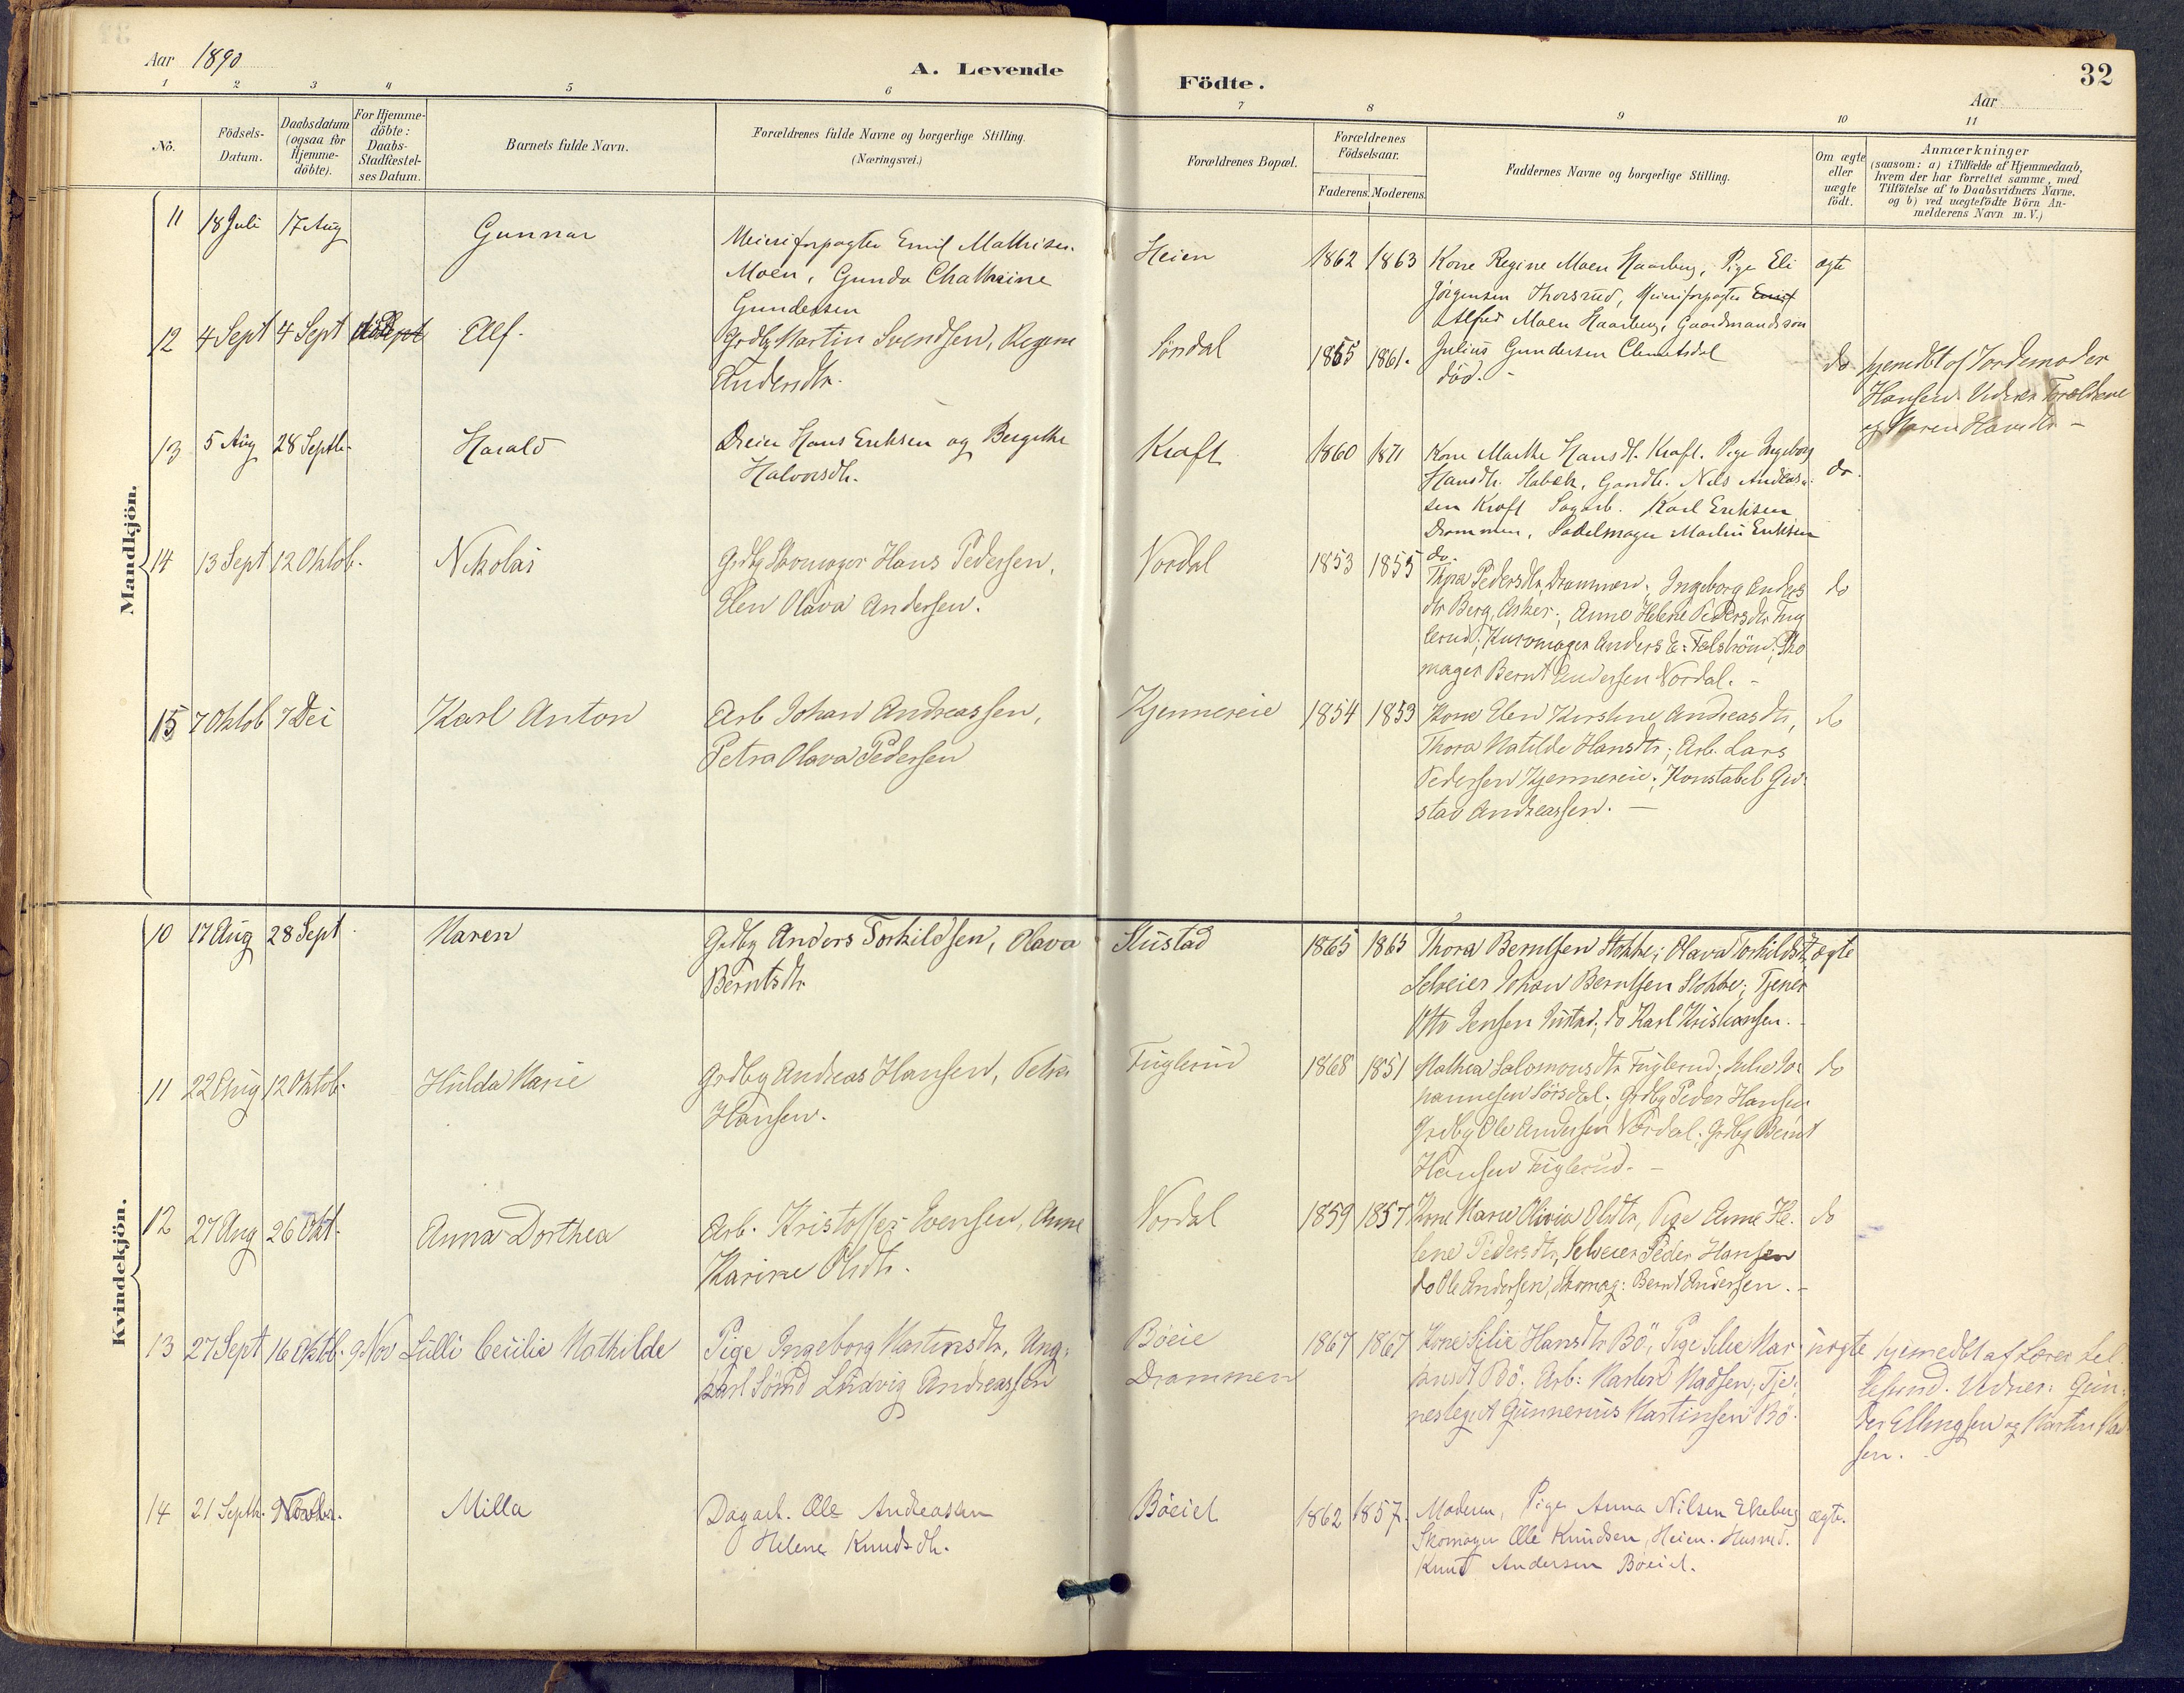 Aar 1890
A. Levende
Födte.
32
Aar
1 2 3 4 5 6 7 8 9 10 11
No.
Födsels-
Datum.
Daabsdatum
(ogsaa for
Hjemme-
döbte).
For Hjemme-
döbte:
Daabs-
Stadfæstel-
ses Datum.
Barnets fulde Navn.
Forældrenes fulde Navne og borgerlige Stilling.
(Næringsvei.)
Forældrenes Bopæl.
Forældrenes
Födselsaar.
Faderens. Moderens.
Faddernes Navne og borgerlige Stilling.
Om ægte
eller
uægte
födt.
Anmærkninger
(saasom: a) i Tilfælde af Hjemmedaab,
hvem der har forrettet samme, med
Tilföielse af to Daabsvidners Navne,
og b) ved uægtefödte Börn An-
melderens Navn m. V.)
Mandkjön.
11 18 Juli 17 Aug
Gunnar
Meieriforpagter Emil Mathisen
Moen, Gunda Chathrine
Gundersen
Heien
1862 1863
Kone Regine Moen Haarberg, Pige Eli
Jörgensen Thorsrud, Meieriforpagter Emil
Alfred Moen Haarberg, Gaardmandssön
Julius Gundersen Clemetsdal
ægte
12 4 Sept 4 Sept
Alf.
Grdbg Martin Svendsen, Regine
Andersdtr.
Sørdal
1865 1861.
död. -
do
hjemdbt af Jordemoder
Hansen. Vidner Forældrene
og Maren Hansdtr -
13 5 Aug 28 Septb.
Harald
Dreier Hans Eriksen og Bergithe
Halvorsdtr.
Kraft
1860 1871
Kone Marthe Hansdt. Kraft. Pige Ingeborg
Hansdtr. Habæk, Gaardtr. Nils Andreas-
sen Kraft Sagarb. Karl Eriksen
Drammen, Sadelmager Martin Eriksen
do.
do.
14 13 Sept 12 Oktob.
Nikolai
Grdbg Skomager Hans Pedersen,
Elen Olava Andersen.
Nordal
1853 1855
Thora Pedersdtr, Drammen; Ingeborg Anders
dtr Berg, Asker; Anne Helene Pedersdtr Fug
lerud; Kurvmager Anders E. Falström; Sko
mager Bernt Andersen Nordal. -
do
15 7 Oktob 7 Dec
Karl Anton
Arb Johan Andreassen,
Petra Olava Pedersen
Kjennereie
1854 1853
Kone Elen Kirstine Andreasdtr,
Thora Matilde Hansdtr; Arb. Lars
Pedersen Kjennereie; Konstabel Gu-
stav Andreassen. -
do
Kvindekjön.
10 17 Aug 28 Sept.
Maren
Grdbg Anders Torkildsen, Olava
Berntsdtr
Skustad
1865 1865
Thora Berntsen Stokke; Olava Torkildsdtr,
Selveier Johan Berntsen Stokke; Tjener
Otto Jensen Justad; do Karl Kristiansen.
ægte
11 22 Aug 12 Oktob.
Hulda Marie
Grdbg Andreas Hansen, Petra
Hansen.
Fuglerud
1868 1851
Mathea Salomonsdtr Fuglerud; Julie Jo-
hannesen Sörsdal; Grdbg Peder Hansen
Grdbg Ole Andersen Nordal; Grdbg Bernt
Hansen Fuglerud. -
do
12 27 Aug 26 Okt.
Anna Dorthea
Arb. Kristoffer Evensen, Anne
Karine Olsdtr.
Nordal
1859 1857
Kone Marie Olivia Olsdtr, Pige Anne He-
lene Pedersdtr, Selveier Peder Hansen
do Ole Andersen, Skomag: Bernt Andersen. -
do
13 27 Sept 16 Oktob. 9 Nov
Lulli Cecilie Mathilde
Pige Ingeborg Martinsdtr, Ung-
karl Ludvig Andreassen
Böeie
Drammen
1867 1867
Kone Silie Hansdtr Bö, Pige Silie Mar-
Bö. Arb: Martin Madsen, Tje-
nestegut Gunnerius Martinsen Bö.
uægte
hjemedbt af Lærer
Vidner: Gun-
der Ellingsen og Martin Mad
sen.
14 21 Septb. 9 Novbr.
Milla
Dagarb. Ole Andreassen
Helene Knudsdtr.
Böeiet
1862 1857.
Moderen, Pige Anna Nilsen Ekeberg
Skomager Ole Knudsen, Heien. Husmd.
Knut Andersen Böeiet.
ægte.